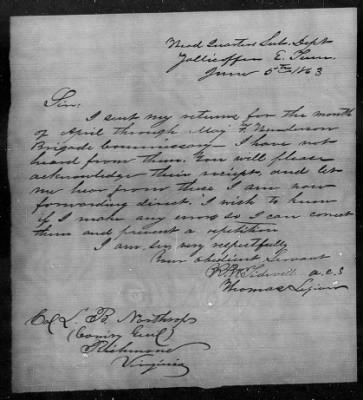 Head Quarters Sub. Dept
Zollicoffer E. Tenn.
June 5th 1863
Sir.
I sent my returns for the month
of April through Maj F. Henderson
Brigade Commissary - I have not
heard from them. You will please
acknowledge their receipt, and let
me hear from these I am now
forwarding direct. I wish to know
if I make any errors so I can correct
them and prevent a repetition
I am, sir, very respectfully
Your obedient Servant
A.C.S
Thomas Legion
Col L. B. Northrop
(Comiy Genl)
Richmond
Virginia